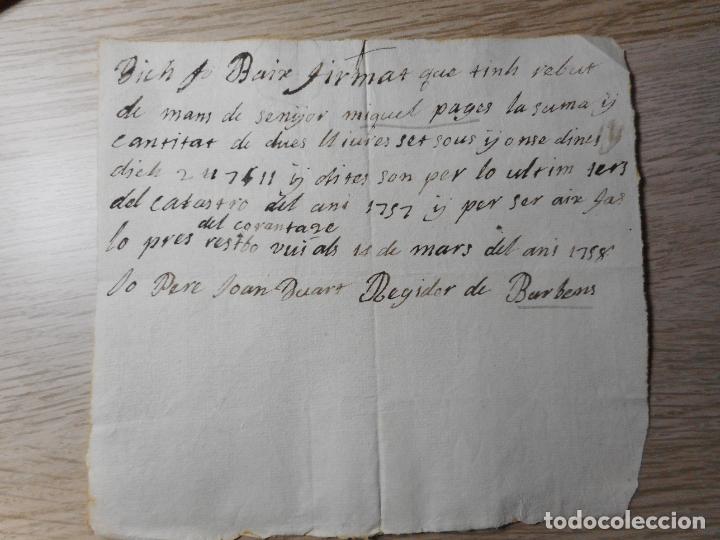 Dich Jo Baix firmat que tinh rebut
de mans de senyor miquel pages la suma ÿ
cantitat de dues lliures set sous ÿ onse dines
dich 2 ll 7 s 11 ÿ dites son per lo ultim ters
del catastro del ani 1757 ÿ per ser aix fas
del corantage
lo pres resibo vui als de mars del ani 1758
Jo Pere Joan Duart Regidor de Barbens
todocoleccion